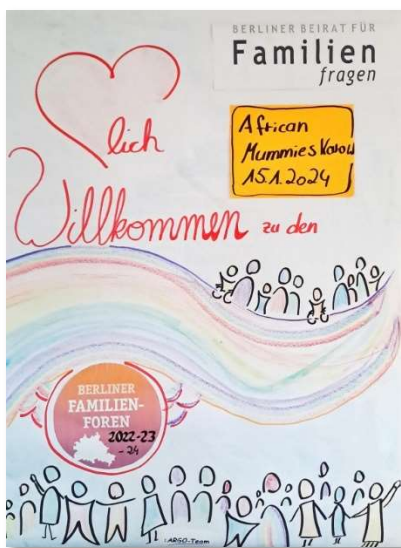 BERLINER BEIRAT FÜR
Familien
fragen
lich
African
Mummies Karow
15.1.2024
Willkommen zu den
BERLINER
FAMILIEN-
FOREN
2022-23
-24
:ARGO-Team